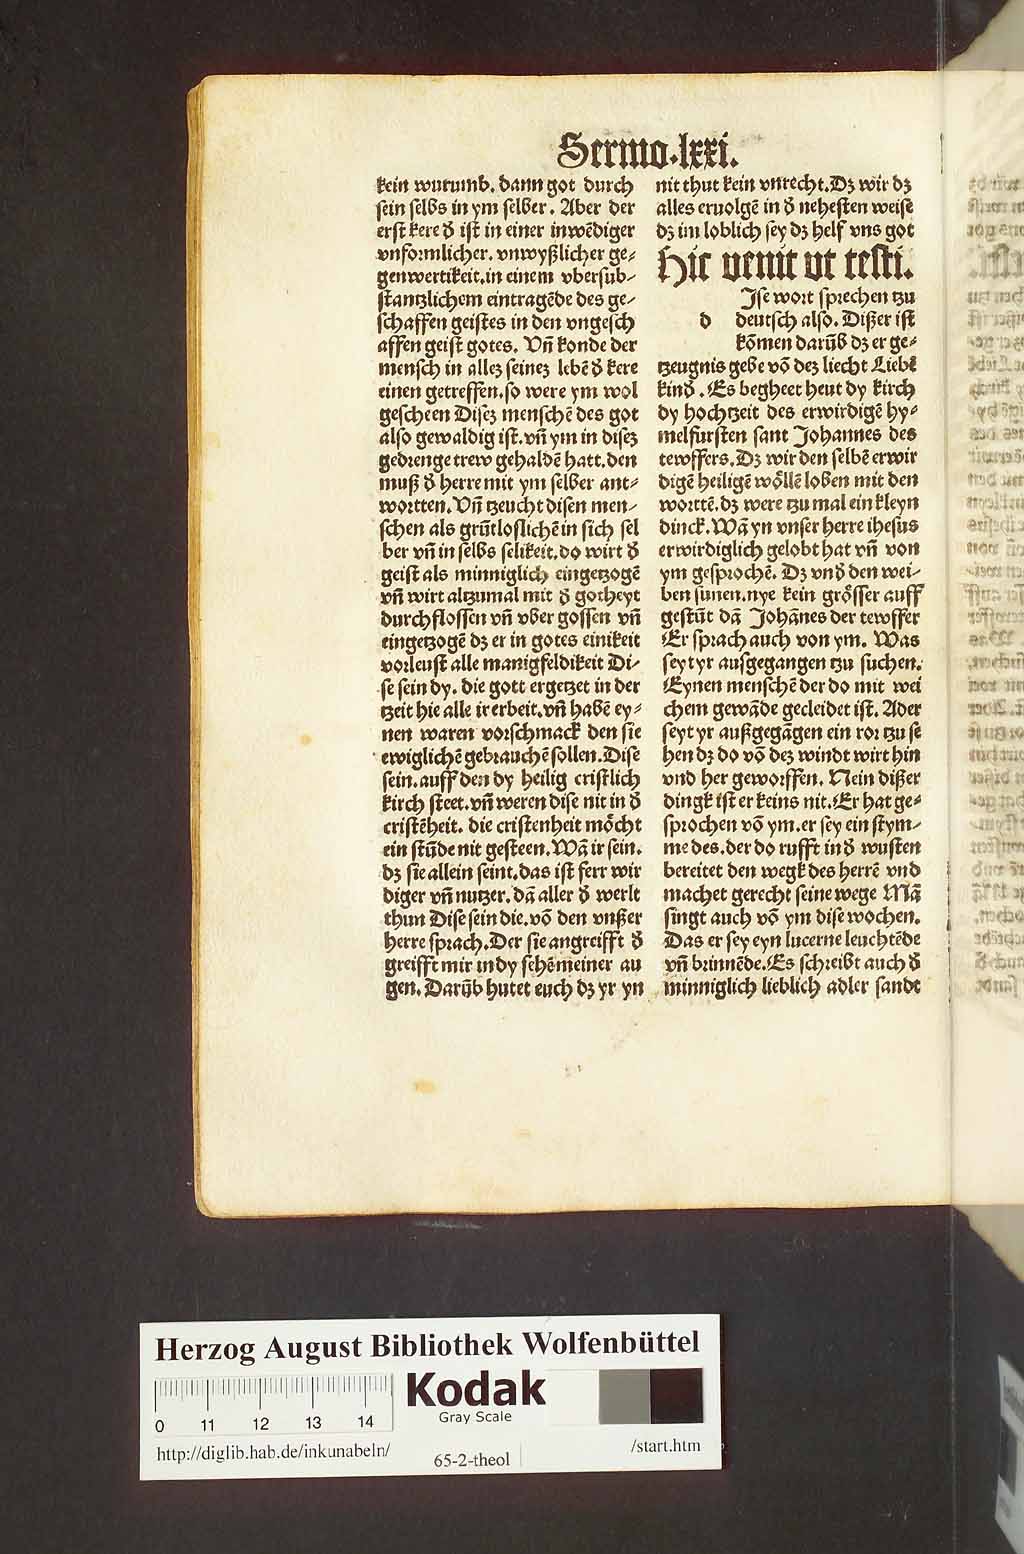 Sermo.lxxi.
kein wurumb. dann got durch
sein selbs in ym selber. Aber der
erst kere ð ist in einer inwēdiger
vnformlicher. vnwyßlicher ge⸗
genwertikeit. in einem vbersub⸗
stantzlichem eintragēde des ge⸗
schaffen geistes in den vngesch
affen geist gotes. Vn̄ konde der
mensch in allez seinez lebē ð kere
einen getreffen. so were ym wol
gescheen Disez menschē des got
also gewaldig ist. vn̄ ym in disez
gedrenge trew gehaldē hatt. den
muß ð herre mit ym selber ant⸗
wortten. Vn̄ tzeucht disen men⸗
schen als grūtloslichē in sich sel
ber vn̄ in selbs selikeit. do wirt ð
geist als minniglich eingetzogē
vn̄ wirt altzumal mit ð gotheyt
durchflossen vn̄ vber gossen vn̄
eingetzogē dz er in gotes einikeit
vorleust alle manigfeldikeit Di⸗
se sein dy. die gott ergetzet in der
tzeit hie alle ir erbeit. vn̄ habē ey⸗
nen waren vorschmack den sie
ewiglichē gebrauchē sollen. Dise
sein. auff den dy heilig cristlich
kirch steet. vn̄ weren dise nit in ð
cristēheit. die cristenheit möcht
ein stūde nit gesteen. Wā ir sein.
dz sie allein seint. das ist ferr wir
diger vn̄ nutzer. dā aller ð werlt
thun Dise sein die. vō den vnßer
herre sprach. Der sie angreifft ð
greifft mir in dy sehē meiner au
gen. Darūb hutet euch dz yr yn
nit thut kein vnrecht. Dz wir dz
alles ervolgē in ð nehesten weise
dz im loblich sey dz helf vns got
Hic venit vt testi.
Jse wort sprechen tzu
d deutsch also. Dißer ist
kōmen darūb dz er ge⸗
tzeugnis gebe vō dez liecht Liebē
kind. Es begheet heut dy kirch
dy hochtzeit des erwirdigē hy⸗
melfursten sant Johannes des
tewffers. Dz wir den selbē erwir
digē heiligē wöllē loben mit den
worttē. dz were tzu mal ein kleyn
dinck. Wā yn vnser herre ihesus
erwirdiglich gelobt hat vn̄ von
ym gesprochē. Dz vnð den wei⸗
ben sunen. nye kein grösser auff
gestūt dā Johānes der tewffer
Er sprach auch von ym. Was
seyt yr ausgegangen tzu suchen.
Eynen menschē der do mit wei
chem gewāde gecleidet ist. Ader
seyt yr außgegāgen ein ror tzu se
hen dz do vō dez windt wirt hin
vnd her geworffen. Nein dißer
dingk ist er keins nit. Er hat ge⸗
sprochen vō ym. er sey ein stym⸗
me des. der do rufft in ð wusten
bereitet den wegk des herrē vnd
machet gerecht seine wege Mā
singt auch vō ym dise wochen.
Das er sey eyn lucerne leuchtēde
vn̄ brinnēde. Es schreibt auch ð
minniglich lieblich adler sandt
Herzog August Bibliothek Wolfenbüttel
Kodak
Gray Scale
0 11 12 13 14
http://diglib.hab.de/inkunabeln/
65-2-theol
/start.htm